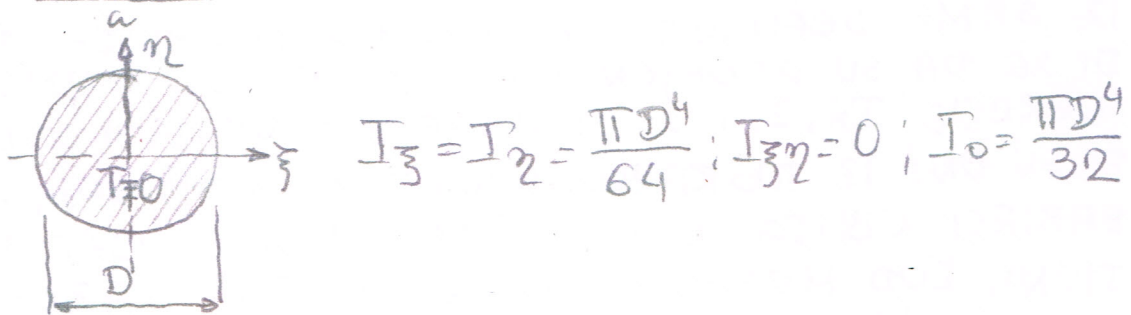 a
η
ξ
T≡0
D
I_ξ = I_η = πD⁴/64 ; I_ξη = 0 ; I₀ = πD⁴/32